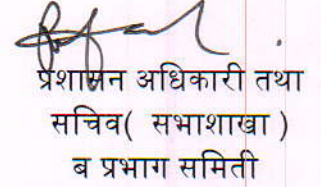 प्रशासन अधिकारी तथा
सचिव( सभाशाखा )
ब प्रभाग समिती